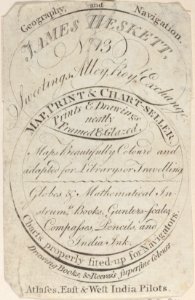 Geography, and Navigation
JAMES HESKETT,
No. 13
Sweetings Alley, Royl. Exchange
MAP, PRINT & CHART-SELLER,
Prints & Drawings
neatly
Framed & Glazed.
Maps beautifully Colourd and
adapted for Librarys or Travelling
Globes & Mathematical In
strumts. Books, Gunters-scales
Compasses, Pencils, and
India Ink.
Charts properly fited-up for Navigators.
Drawing Books, & Reeves's superfine Colours.
Atlases, East & West India Pilots.